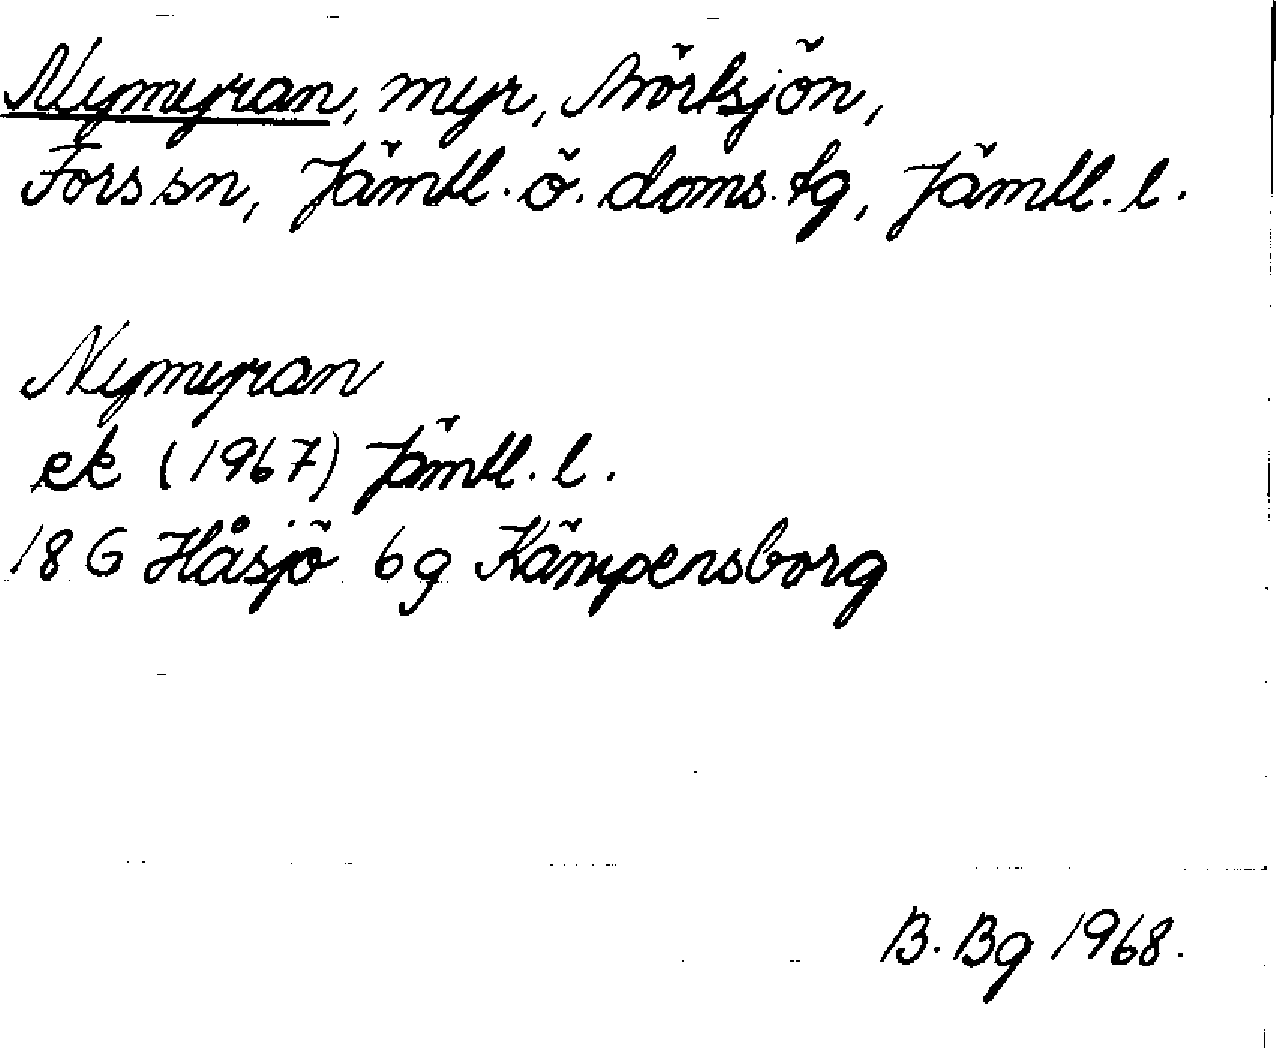 Nymyran, myr, Mörtsjön,
Fors sn, Jämtl. ö. doms. tg, Jämtl. l.
Nymyran
ek (1967) Jämtl. l.
18 G Håsjö 6g Kämpensborg
B. Bg 1968.